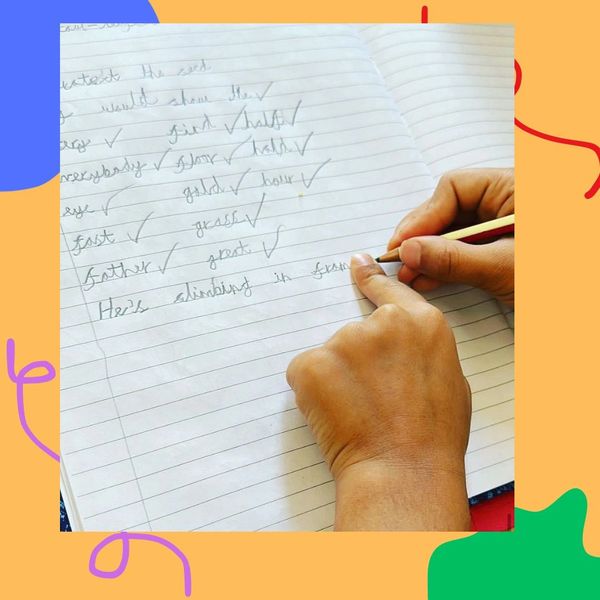 the
would show the ✓
✓ find ✓ half ✓
everybody ✓ floor ✓ hold ✓
eye ✓ gold ✓ hour ✓
fast ✓ grass ✓
father ✓ great ✓
He's climbing in